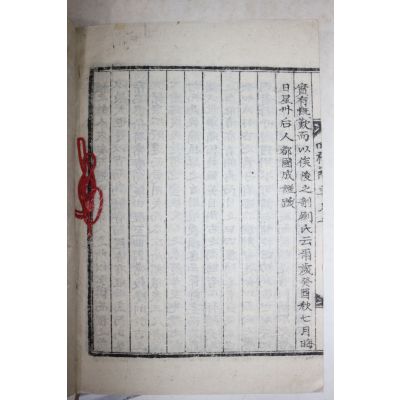 實有無歎而以俟後之剞劂氏云爾歲癸酉秋七月晦
日星州后人都國成謹跋